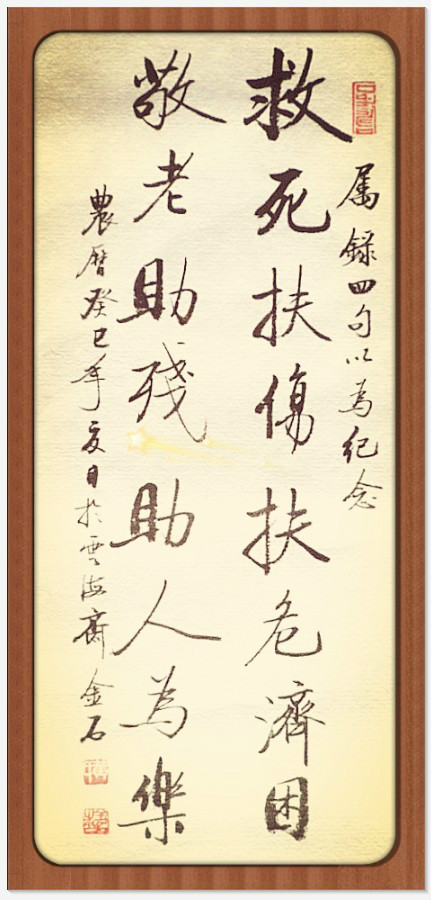 属录四句以为纪念
救死扶傷扶危濟困
敬老助殘助人為樂
農曆癸巳年夏日於雲海齋金石